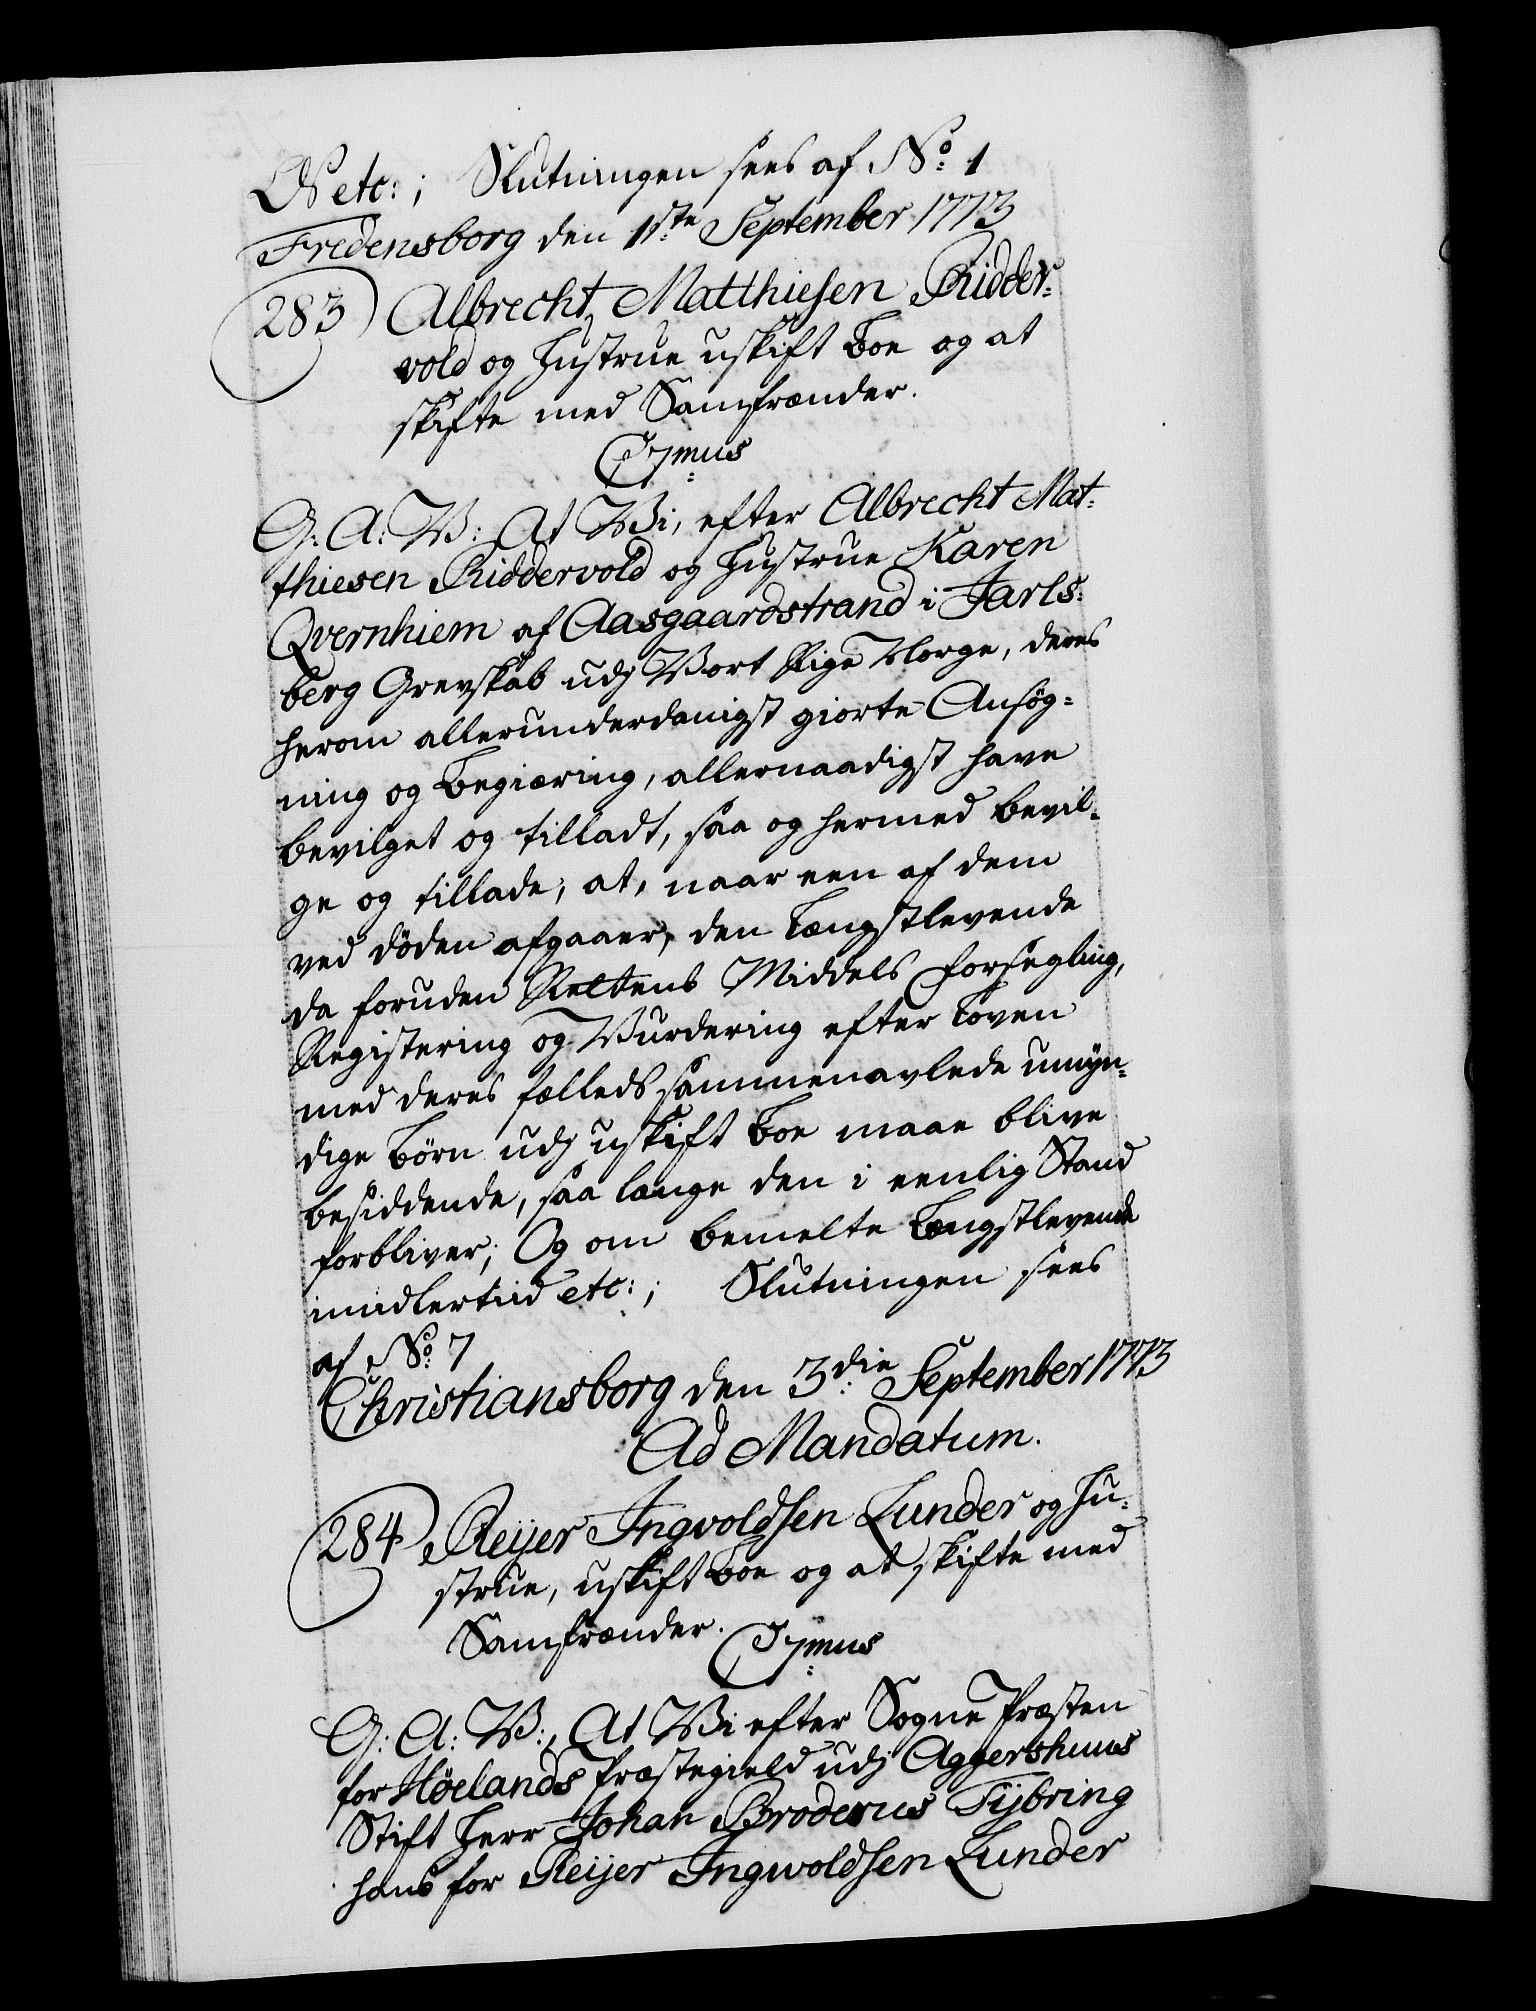 etc: ; Slutningen sees af No: 1
Fredensborg den 1ste September 1773
283 Albrecht Matthiesen Ridder-
vold og Hustrue uskift Boe og at
skifte med Samfrænder.
G: A: V: At Vi, efter Albrecht Mat-
thiesen Riddervold og Hustrue Karen
Qvernhiem af Aasgaardstrand i Jarls-
berg Grevskab udj Vort Rige Norge, deres
herom allerunderdanigst giorte Ansøg-
ning og Begiæring, allernaadigst have
bevilget og tilladt, saa og hermed bevil-
ge og tillade, at, naar een af dem
ved døden afgaaer, den Længstlevende
da foruden Rettens Middels Forsegling,
Registering og Vurdering efter Loven
med deres fælleds sammenavlede umÿn-
dige Børn udj uskift Boe maae blive
besiddende, saa længe den i eenlig Stand
forbliver; Og om bemelte Længstlevende
imidlertiid etc: ; Slutningen sees
af No: 7
Christiansborg den 3die September 1773
Ad Mandatum.
284 Reijer Ingvoldsen Lunder og Hu-
strue, uskift Boe og at skifte med
Samfrænder.
G: A: V:, At Vi efter Sogne Præsten
for Höelands Præstegield udj Aggershuus
Stift Herr Johan Broderus Tijbring
hans for Reijer Ingwoldsen Lunder